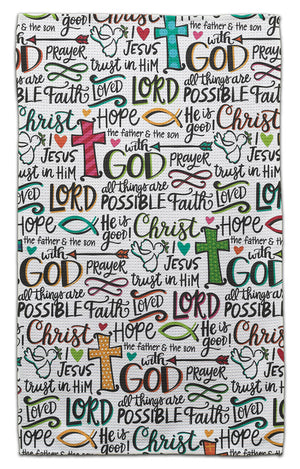 the father & the son
PRAYER
JESUS
trust in HiM
with
GOD
Faith
Loved
LORD
all things are
POSSIBLE
Christ
HOPE
the father & the son
He is
good!
I JESUS
trust in HiM
with
GOD
PRAYER
Loved
LORD
all things are
POSSIBLE
Faith
HOPE
the father & the son
He is
good!
Christ
with
GOD
PRAYER
I JESUS
trust in HiM
all things are
POSSIBLE
Faith
Loved
LORD
Christ
HOPE
the father & the son
He is
good!
I JESUS
trust in HiM
with
GOD
PRAYER
Loved
LORD
all things are
POSSIBLE
Faith
HOPE
He is
good!
Christ
HOPE